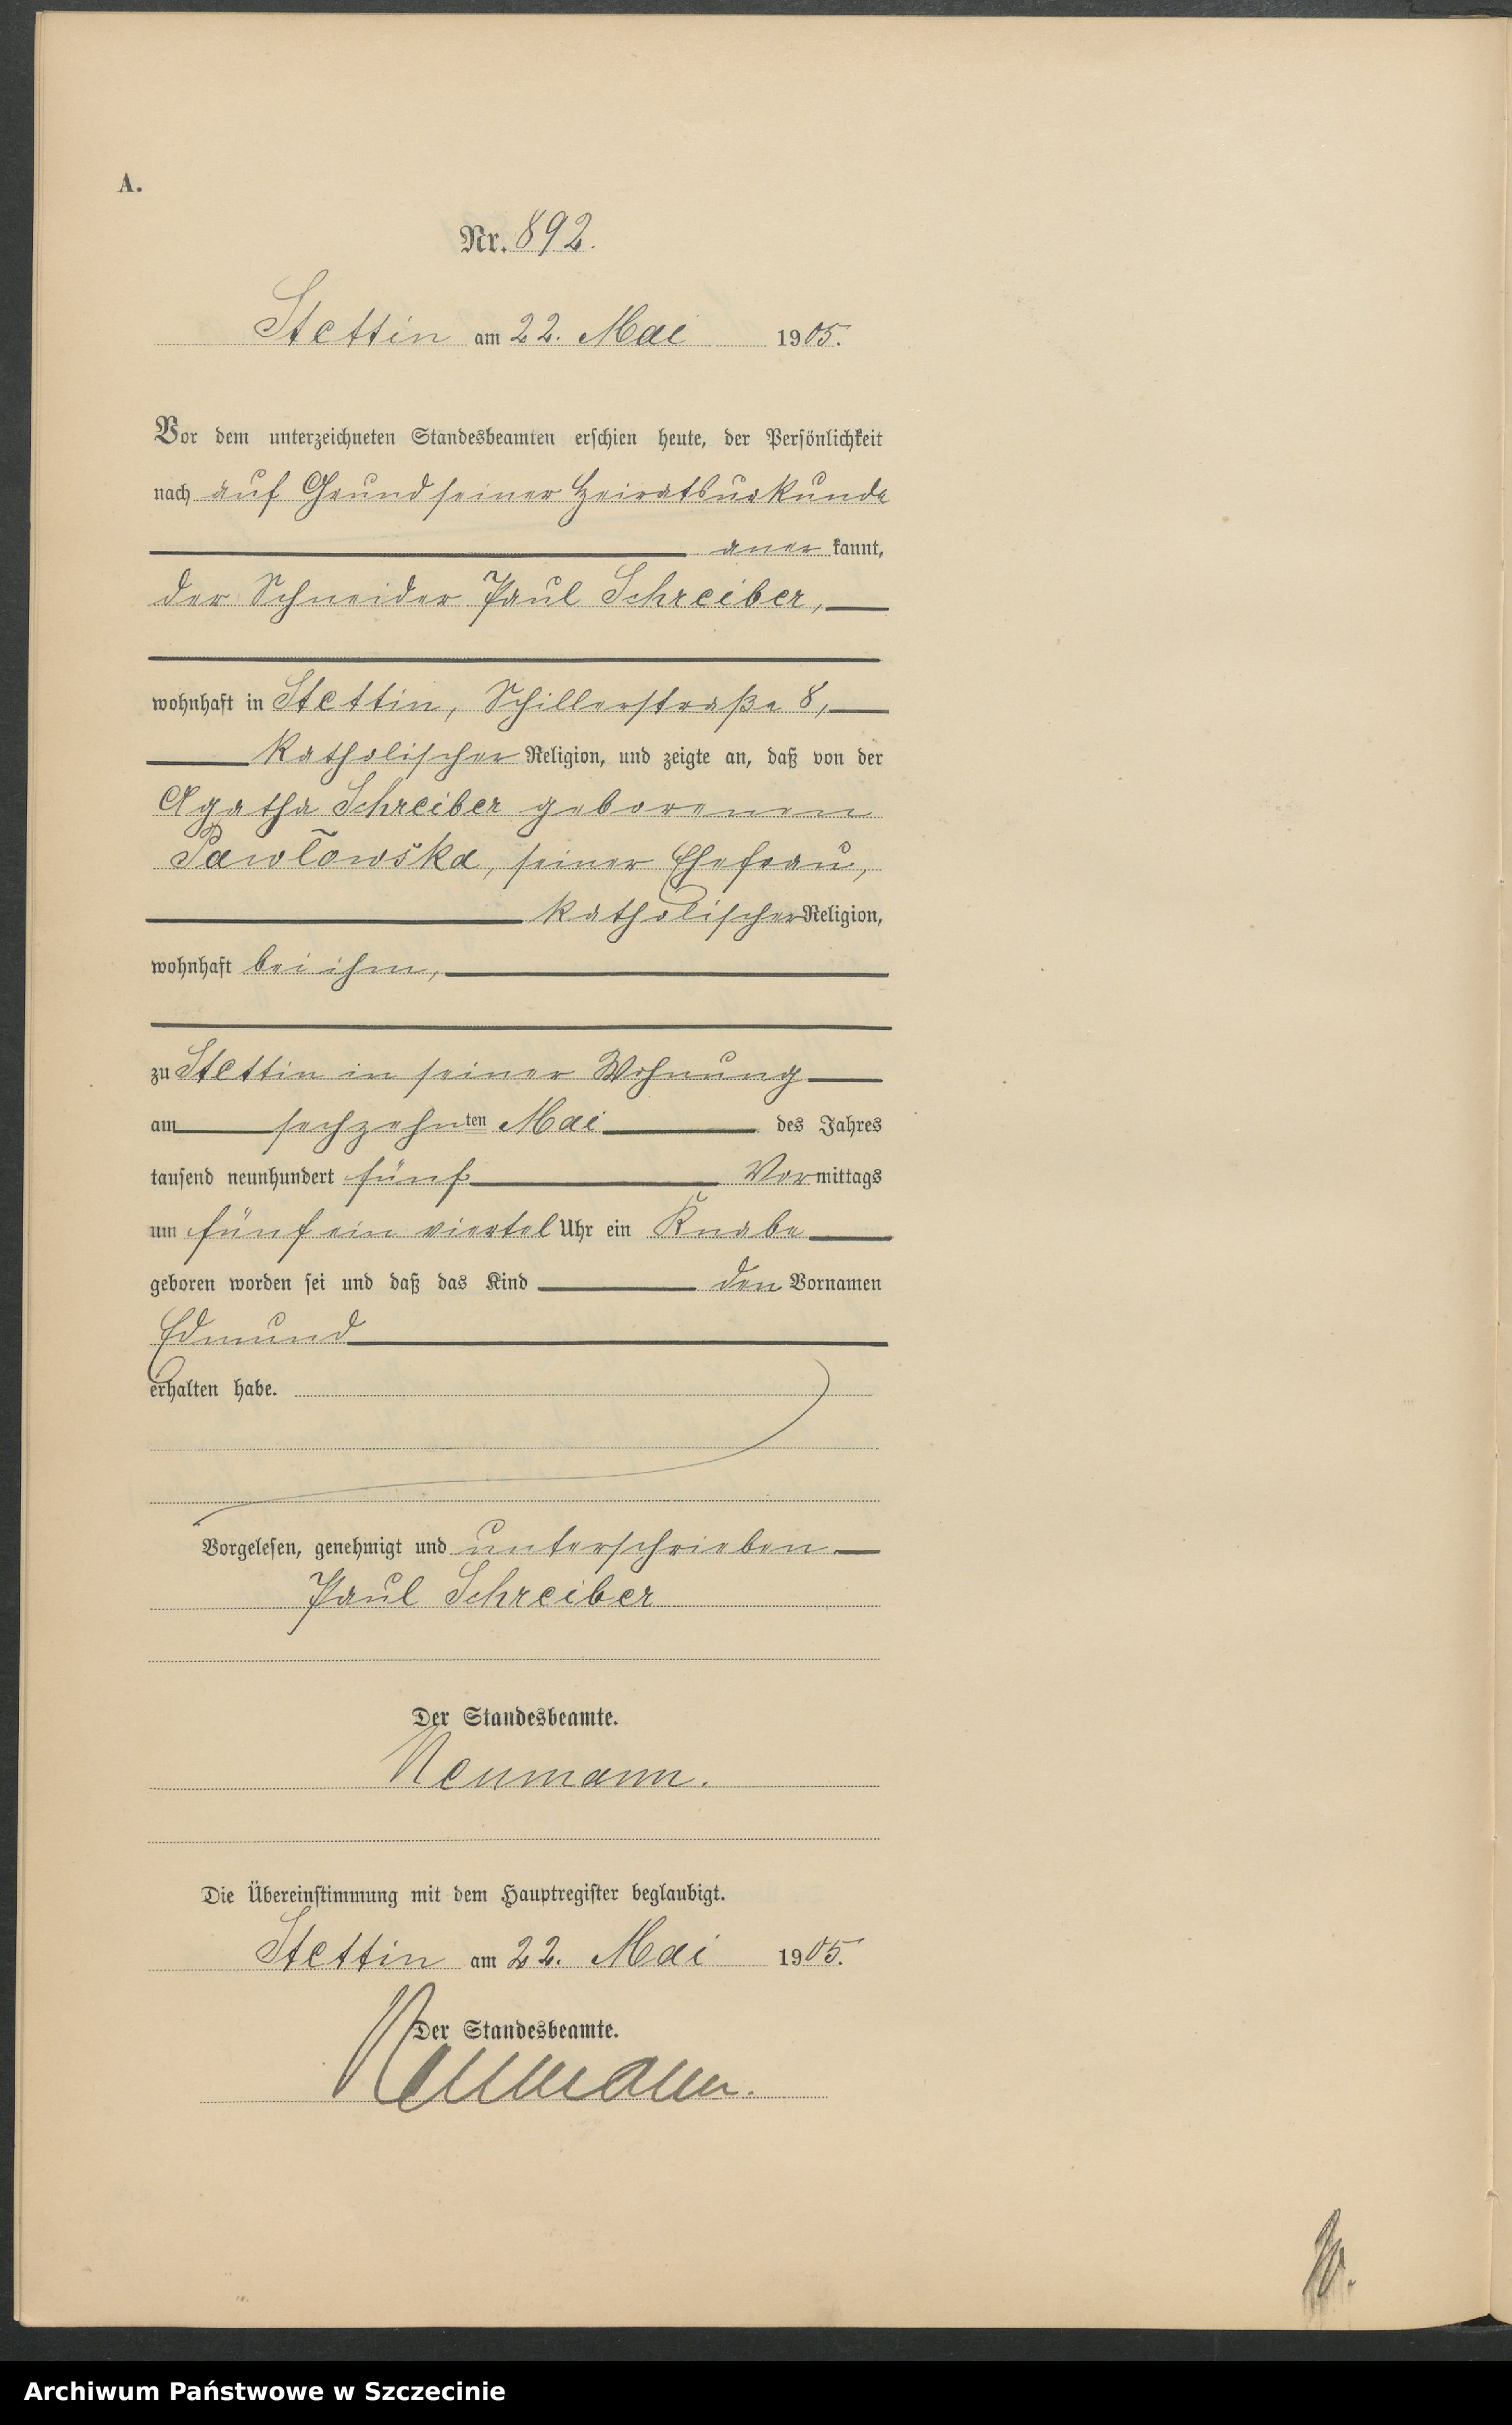 A.
Nr. 892.
Stettin am 22. Mai 1905.
Vor dem unterzeichneten Standesbeamten erschien heute, der Persönlichkeit
nach auf Grund seiner Heiratsurkunde
aner kannt,
der Schneider Paul Schreiber,
wohnhaft in Stettin, Schillerstraße 8,
katholischer Religion, und zeigte an, daß von der
Agatha Schreiber geborenen
Pawlowska, seiner Ehefrau,
katholischer Religion,
wohnhaft bei ihm,
zu Stettin in seiner Wohnung
am sechzehnten Mai des Jahres
tausend neunhundert fünf Vormittags
um fünf ein viertel Uhr ein Knabe
geboren worden sei und daß das Kind den Vornamen
Edmund
erhalten habe.
Vorgelesen, genehmigt und unterschrieben
Paul Schreiber
Der Standesbeamte.
Neumann.
Die Übereinstimmung mit dem Hauptregister beglaubigt.
Stettin am 22. Mai 1905.
Der Standesbeamte.
Neumann.
Archiwum Państwowe w Szczecinie